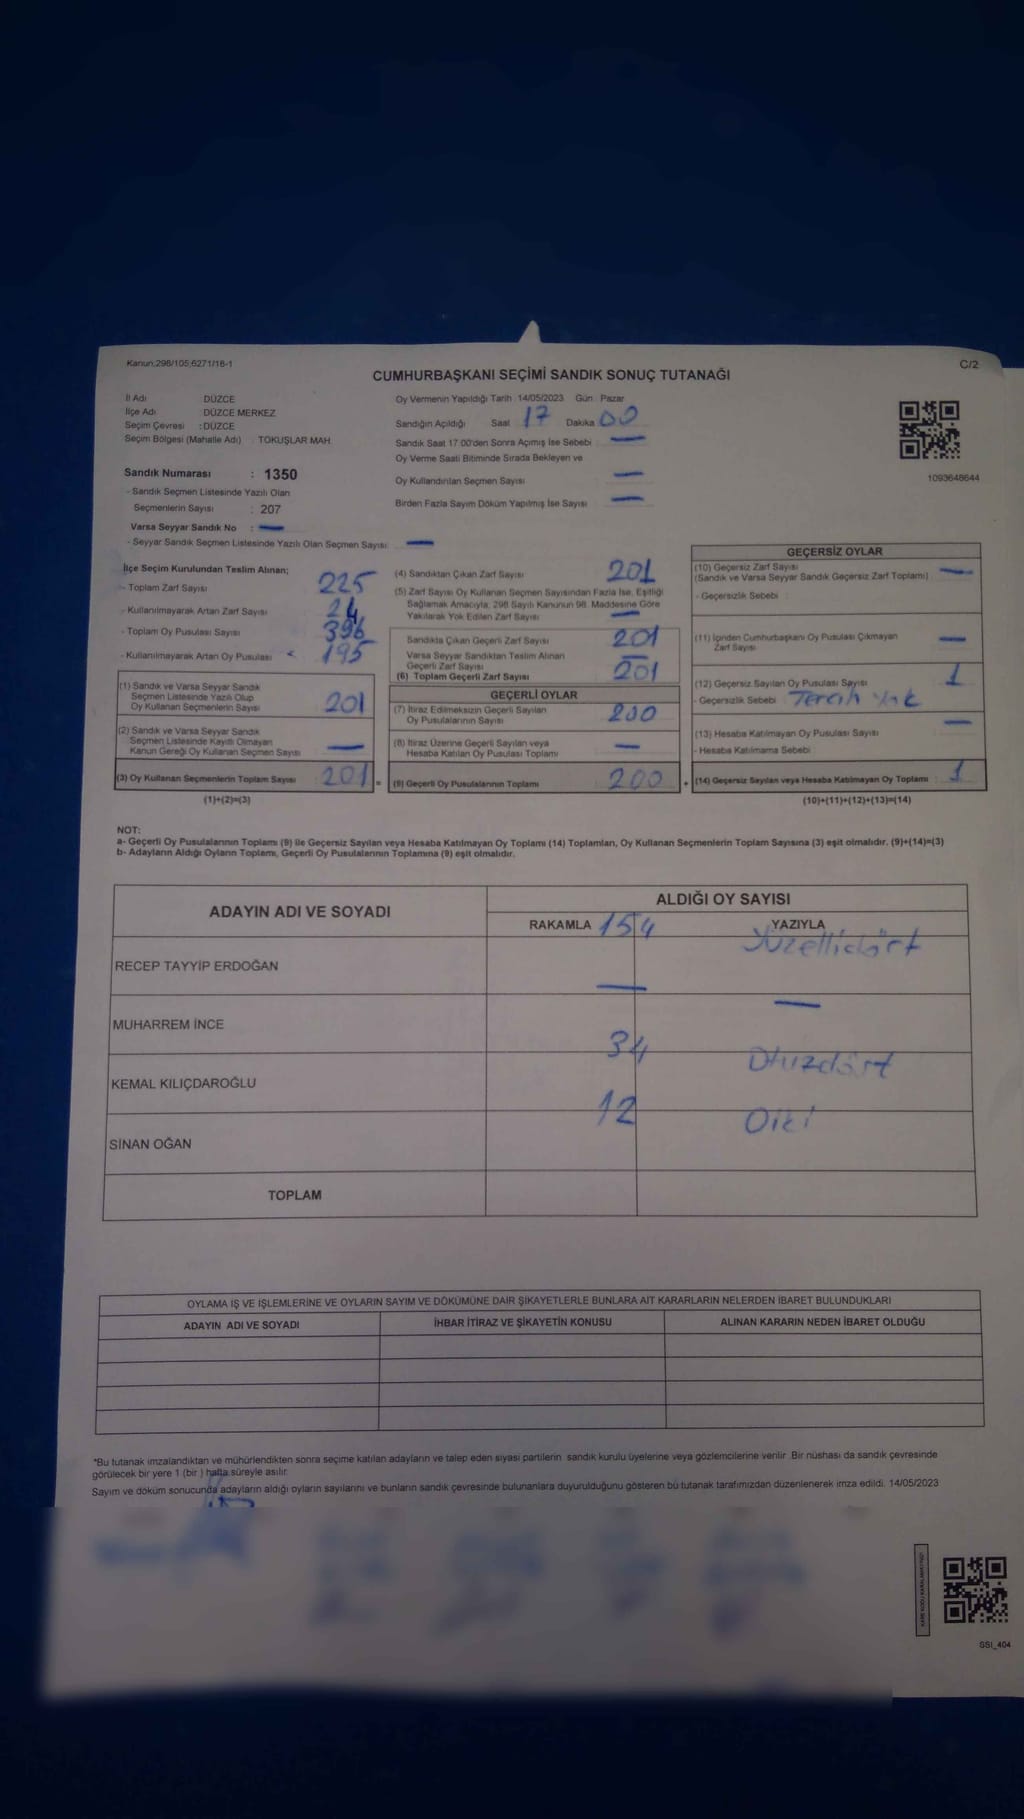 Kanun,298/105,6271/16-1
C/2
CUMHURBAŞKANI SEÇİMİ SANDIK SONUÇ TUTANAĞI
İl Adı DÜZCE
İlçe Adı DÜZCE MERKEZ
Seçim Çevresi : DÜZCE
Seçim Bölgesi (Mahalle Adı) : TOKUŞLAR MAH.
Sandık Numarası : 1350
- Sandık Seçmen Listesinde Yazılı Olan
Seçmenlerin Sayısı : 207
Varsa Seyyar Sandık No : —
- Seyyar Sandık Seçmen Listesinde Yazılı Olan Seçmen Sayısı —
Oy Vermenin Yapıldığı Tarih 14/05/2023 Gün Pazar
Sandığın Açıldığı Saat 17 Dakika 00
Sandık Saat 17:00'den Sonra Açımış İse Sebebi —
Oy Verme Saati Bitiminde Sırada Bekleyen ve
Oy Kullandırılan Seçmen Sayısı —
Birden Fazla Sayım Döküm Yapılmış İse Sayısı —
1093648644
İlçe Seçim Kurulundan Teslim Alınan;
- Toplam Zarf Sayısı 225
- Kullanılmayarak Artan Zarf Sayısı 24
- Toplam Oy Pusulası Sayısı 396
- Kullanılmayarak Artan Oy Pusulası 195
(1) Sandık ve Varsa Seyyar Sandık
Seçmen Listesinde Yazılı Olup
Oy Kullanan Seçmenlerin Sayısı 201
(2) Sandık ve Varsa Seyyar Sandık
Seçmen Listesinde Kayıtlı Olmayan
Kanun Gereği Oy Kullanan Seçmen Sayısı —
(3) Oy Kullanan Seçmenlerin Toplam Sayısı 201 =
(1)+(2)=(3)
(4) Sandıktan Çıkan Zarf Sayısı 201
(5) Zarf Sayısı Oy Kullanan Seçmen Sayısından Fazla İse, Eşitliği
Sağlamak Amacıyla, 298 Sayılı Kanunun 98. Maddesine Göre
Yakılarak Yok Edilen Zarf Sayısı —
Sandıkta Çıkan Geçerli Zarf Sayısı 201
Varsa Seyyar Sandıktan Teslim Alınan
Geçerli Zarf Sayısı —
(6) Toplam Geçerli Zarf Sayısı 201
GEÇERLİ OYLAR
(7) İtiraz Edilmeksizin Geçerli Sayılan
Oy Pusulalarının Sayısı 200
(8) İtiraz Üzerine Geçerli Sayılan veya
Hesaba Katılan Oy Pusulası Toplamı —
(9) Geçerli Oy Pusulalarının Toplamı 200 +
GEÇERSİZ OYLAR
(10) Geçersiz Zarf Sayısı
(Sandık ve Varsa Seyyar Sandık Geçersiz Zarf Toplamı) —
- Geçersizlik Sebebi :
(11) İçinden Cumhurbaşkanı Oy Pusulası Çıkmayan
Zarf Sayısı —
(12) Geçersiz Sayılan Oy Pusulası Sayısı 1
- Geçersizlik Sebebi Tercih Yok
(13) Hesaba Katılmayan Oy Pusulası Sayısı —
- Hesaba Katılmama Sebebi
(14) Geçersiz Sayılan veya Hesaba Katılmayan Oy Toplamı : 1
(10)+(11)+(12)+(13)=(14)
NOT:
a- Geçerli Oy Pusulalarının Toplamı (9) ile Geçersiz Sayılan veya Hesaba Katılmayan Oy Toplamı (14) Toplamları, Oy Kullanan Seçmenlerin Toplam Sayısına (3) eşit olmalıdır. (9)+(14)=(3)
b- Adayların Aldığı Oyların Toplamı, Geçerli Oy Pusulalarının Toplamına (9) eşit olmalıdır.
ADAYIN ADI VE SOYADI
ALDIĞI OY SAYISI
RAKAMLA YAZIYLA
RECEP TAYYİP ERDOĞAN 154 Yüzellidört
MUHARREM İNCE — —
KEMAL KILIÇDAROĞLU 34 Otuzdört
SİNAN OĞAN 12
TOPLAM
OYLAMA İŞ VE İŞLEMLERİNE VE OYLARIN SAYIM VE DÖKÜMÜNE DAİR ŞİKAYETLERLE BUNLARA AİT KARARLARIN NELERDEN İBARET BULUNDUKLARI
ADAYIN ADI VE SOYADI İHBAR İTİRAZ VE ŞİKAYETİN KONUSU ALINAN KARARIN NEDEN İBARET OLDUĞU
*Bu tutanak imzalandıktan ve mühürlendikten sonra seçime katılan adayların ve talep eden siyasi partilerin sandık kurulu üyelerine veya gözlemcilerine verilir. Bir nüshası da sandık çevresinde
görülecek bir yere 1 (bir) hafta süreyle asılır.
Sayım ve döküm sonucunda adayların aldığı oyların sayılarını ve bunların sandık çevresinde bulunanlara duyurulduğunu gösteren bu tutanak tarafımızdan düzenlenerek imza edildi. 14/05/2023
SSI_404